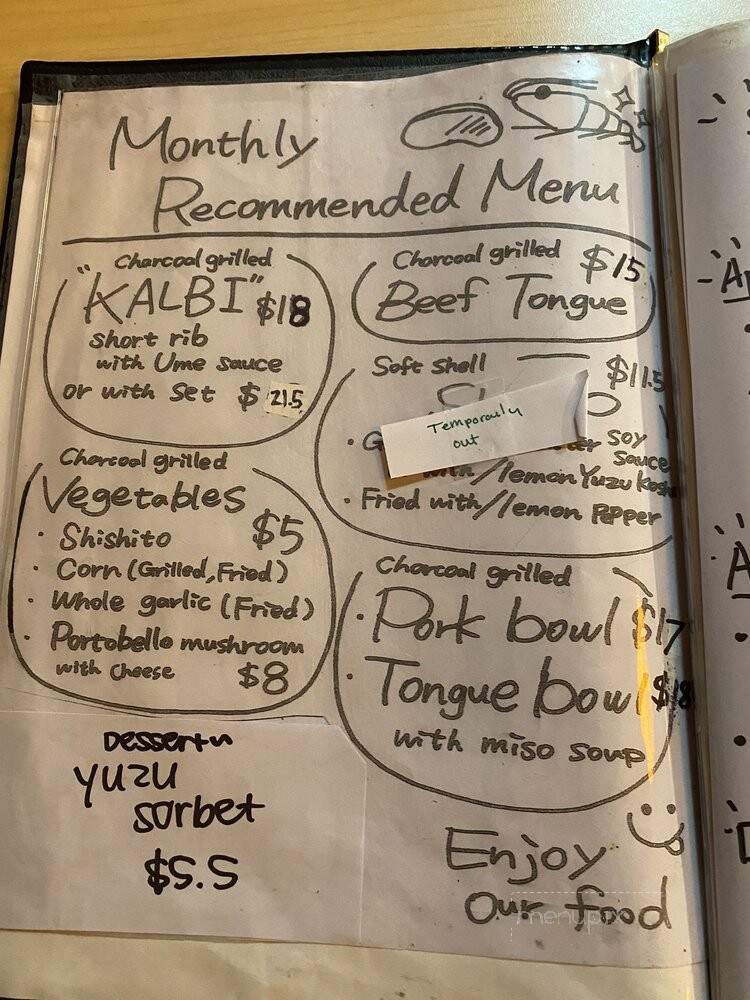 Monthly
Recommended Menu
Charcoal grilled
"KALBI" $18
short rib
with Ume sauce
or with set $ 21.5
Charcoal grilled
Vegetables
· Shishito $5
· Corn (Grilled, Fried)
· Whole garlic (Fried)
· Portobello mushroom
with cheese $8
Dessert
YUZU
sorbet
$5.5
Charcoal grilled $15
Beef Tongue
Soft shell $11.5
Temporauly
out
Soy
Sauce
with/lemon Yuzu
· Fried with/lemon PePPer
Charcoal grilled
· Pork bowl $17
· Tongue bowl $18
with miso soup
Enjoy
our food
menupix